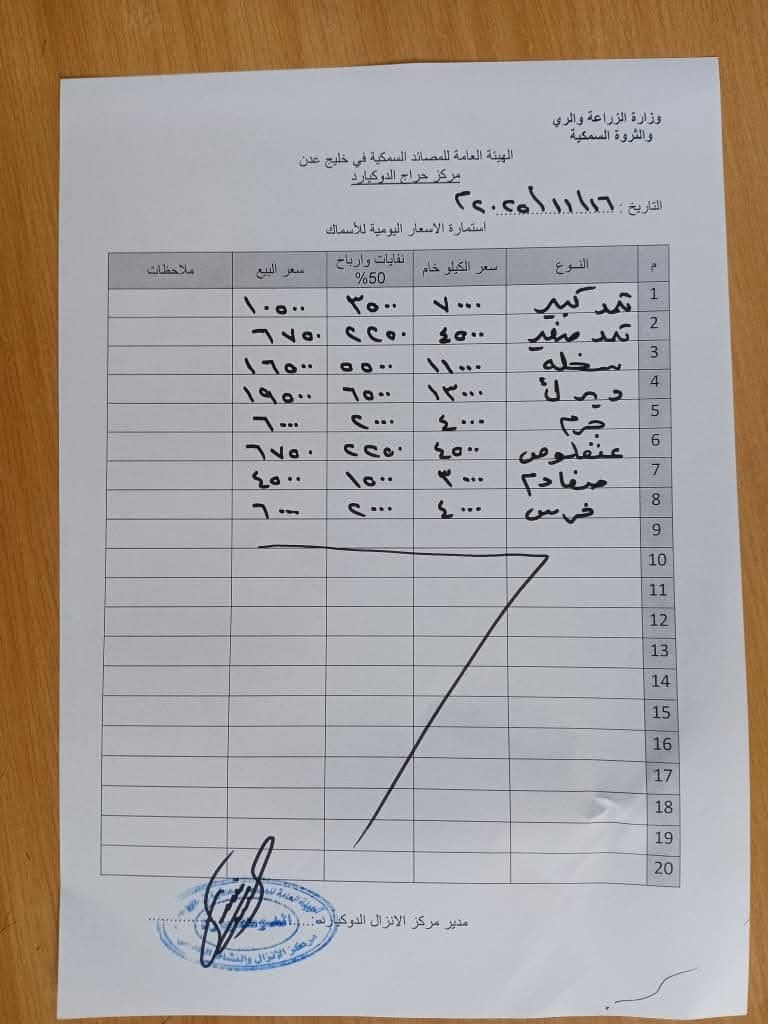 وزارة الزراعة والري
والثروة السمكية
الهيئة العامة للمصائد السمكية في خليج عدن
مركز حراج الدوكيارد
التاريخ : ١٦/١١/٢٠٢٥م
استمارة الاسعار اليومية للأسماك
م النوع سعر الكيلو خام نفايات وارباح 50% سعر البيع ملاحظات
1 ثمد كبير ٧٠٠٠ ٣٥٠٠ ١٠٥٠٠
2 ثمد صغير ٤٥٠٠ ٢٢٥٠ ٦٧٥٠
3 سخله ١١٠٠٠ ٥٥٠٠ ١٦٥٠٠
4 ديرك ١٣٠٠٠ ٦٥٠٠ ١٩٥٠٠
5 جرم ٤٠٠٠ ٢٠٠٠ ٦٠٠٠
6 عنفلوص ٤٥٠٠ ٢٢٥٠ ٦٧٥٠
7 صفادم ٣٠٠٠ ١٥٠٠ ٤٥٠٠
8 فرس ٤٠٠٠ ٢٠٠٠ ٦٠٠٠
9
10
11
12
13
14
15
16
17
18
19
20
مدير مركز الانزال الدوكيارد:
الهيئة العامة
مركز الإنزال